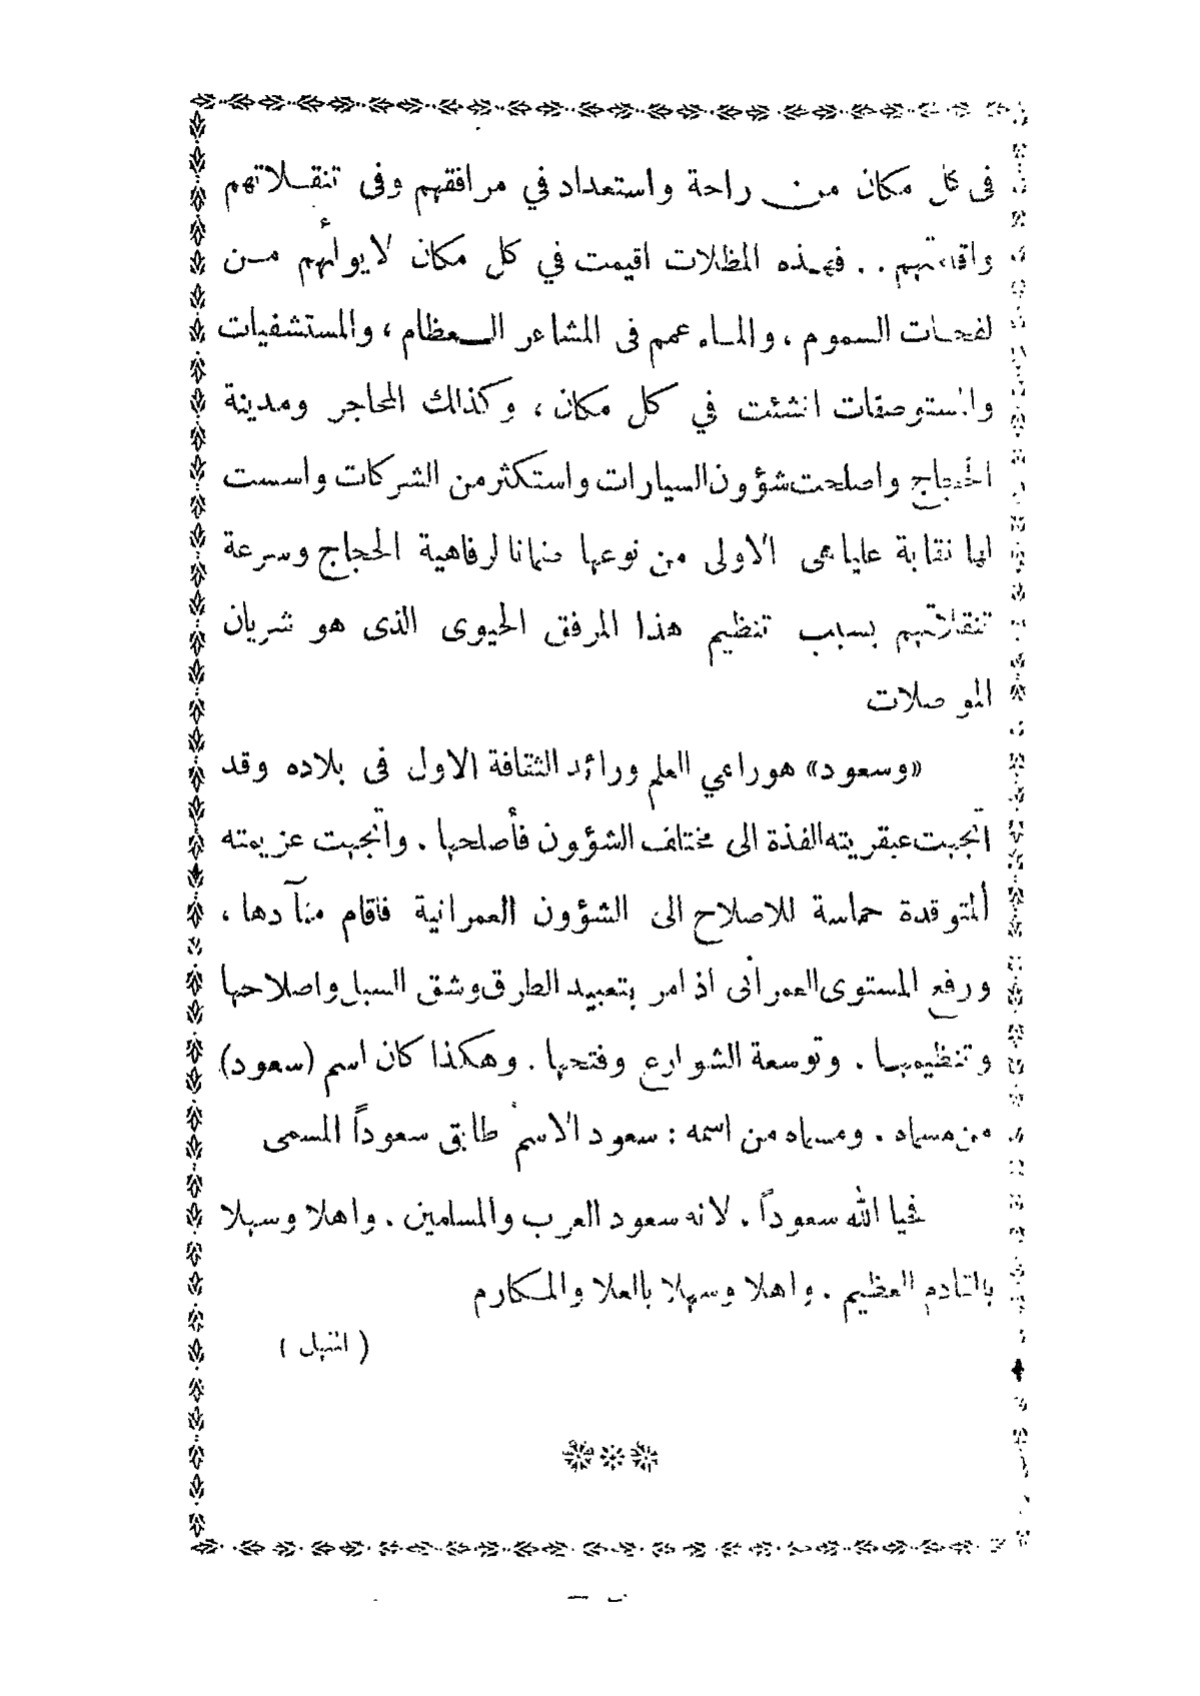 فى كل مكان من راحة واستعداد في مرافقهم وفى تنقلاتهم
واقامتهم . . فهذه المظلات اقيمت في كل مكان لايوائهم من
لفحات السموم ، والماء عمم فى المشاعر العظام ، والمستشفيات
والمستوصفات انشئت في كل مكان ، وكذالك المحاجر ومدينة
الحجاج واصلحت شؤون السيارات واستكثر من الشركات واسست
لها نقابة عليا هى الاولى من نوعها ضمانا لرفاهية الحجاج وسرعة
تنقلاتهم بسبب تنظيم هذا المرفق الحيوى الذى هو شريان
المواصلات
«وسعود» هو راعي العلم ورائد الثقافة الاول فى بلاده وقد
اتجهت عبقريته الفذة الى مختلف الشؤون فأصلحها . واتجهت عزيمته
المتوقدة حماسة للاصلاح الى الشؤون العمرانية فاقام منآدها ،
ورفع المستوى العمرانى اذ امر بتعبيد الطرق وشق السبل واصلاحها
وتنظيمها . وتوسعة الشوارع وفتحها . وهكذا كان اسم (سعود)
من مسماه . ومسماه من اسمه : سعود الاسم طابق سعوداً المسمى
فحيا الله سعوداً . لانه سعود العرب والمسلمين . واهلا وسهلا
بالقادم العظيم . واهلا وسهلا بالعلا والمكارم
( المنهل )